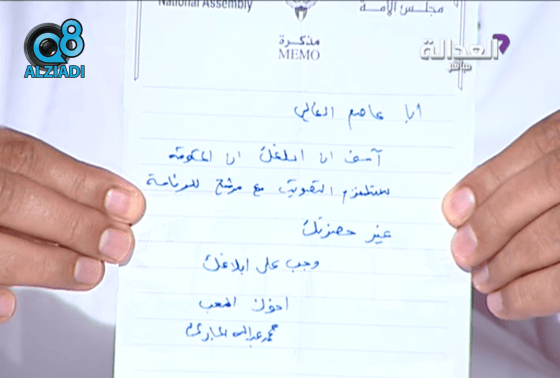 National Assembly
مجلس الأمة
مذكرة
MEMO
Q8
ALZIADI
العدالة
مباشر
أبا عاصم الغالي
آسف ان ابلغك ان الحكومة
ستلتزم التصويت مع مرشح للرئاسة
غير حضرتك
وجب علي ابلاغك
اخوك المحب
محمد عبدالله المبارك